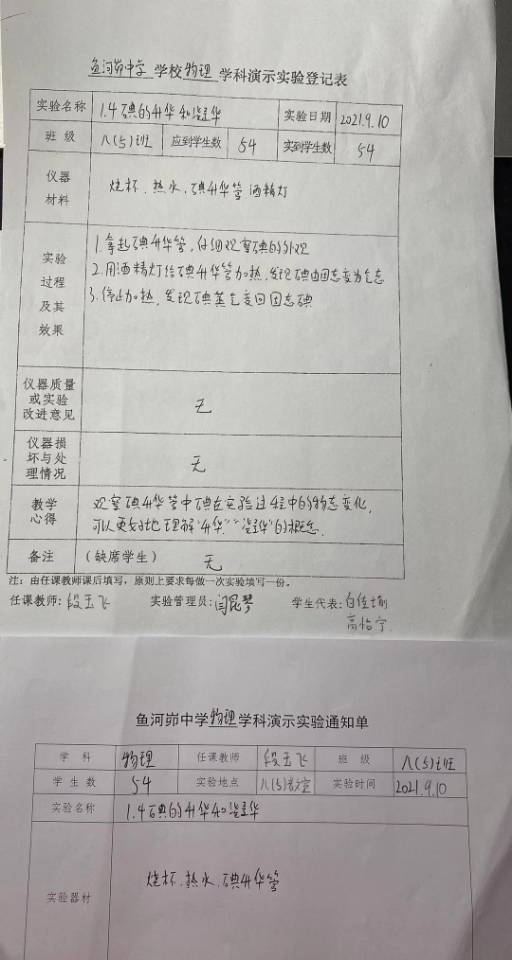 鱼河峁中学 学校 物理 学科演示实验登记表
实验名称 1.4碘的升华和凝华 实验日期 2021.9.10
班 级 八(5)班 应到学生数 54 实到学生数 54
仪器
材料
烧杯、热水、碘升华管 酒精灯
实验
过程
及其
效果
1.拿起碘升华管,仔细观察碘的外观
2.用酒精灯给碘升华管加热,发现碘由固态变为气态
3.停止加热,发现碘蒸气变回固态碘
仪器质量
或实验
改进意见
无
仪器损
坏与处
理情况
无
教学
心得
观察碘升华管中碘在实验过程中的物态变化,
可以更好地理解“升华”“凝华”的概念.
备注 (缺席学生) 无
注:由任课教师课后填写,原则上要求每做一次实验填写一份。
任课教师:段玉飞 实验管理员:闫昆琴 学生代表:
高怡宁
鱼河峁中学物理学科演示实验通知单
学 科 物理 任课教师 段玉飞 班 级 八(5)班
学 生 数 54 实验地点 八(5)教室 实验时间 2021.9.10
实验名称 1.4碘的升华和凝华
实验器材 烧杯、热水、碘升华管